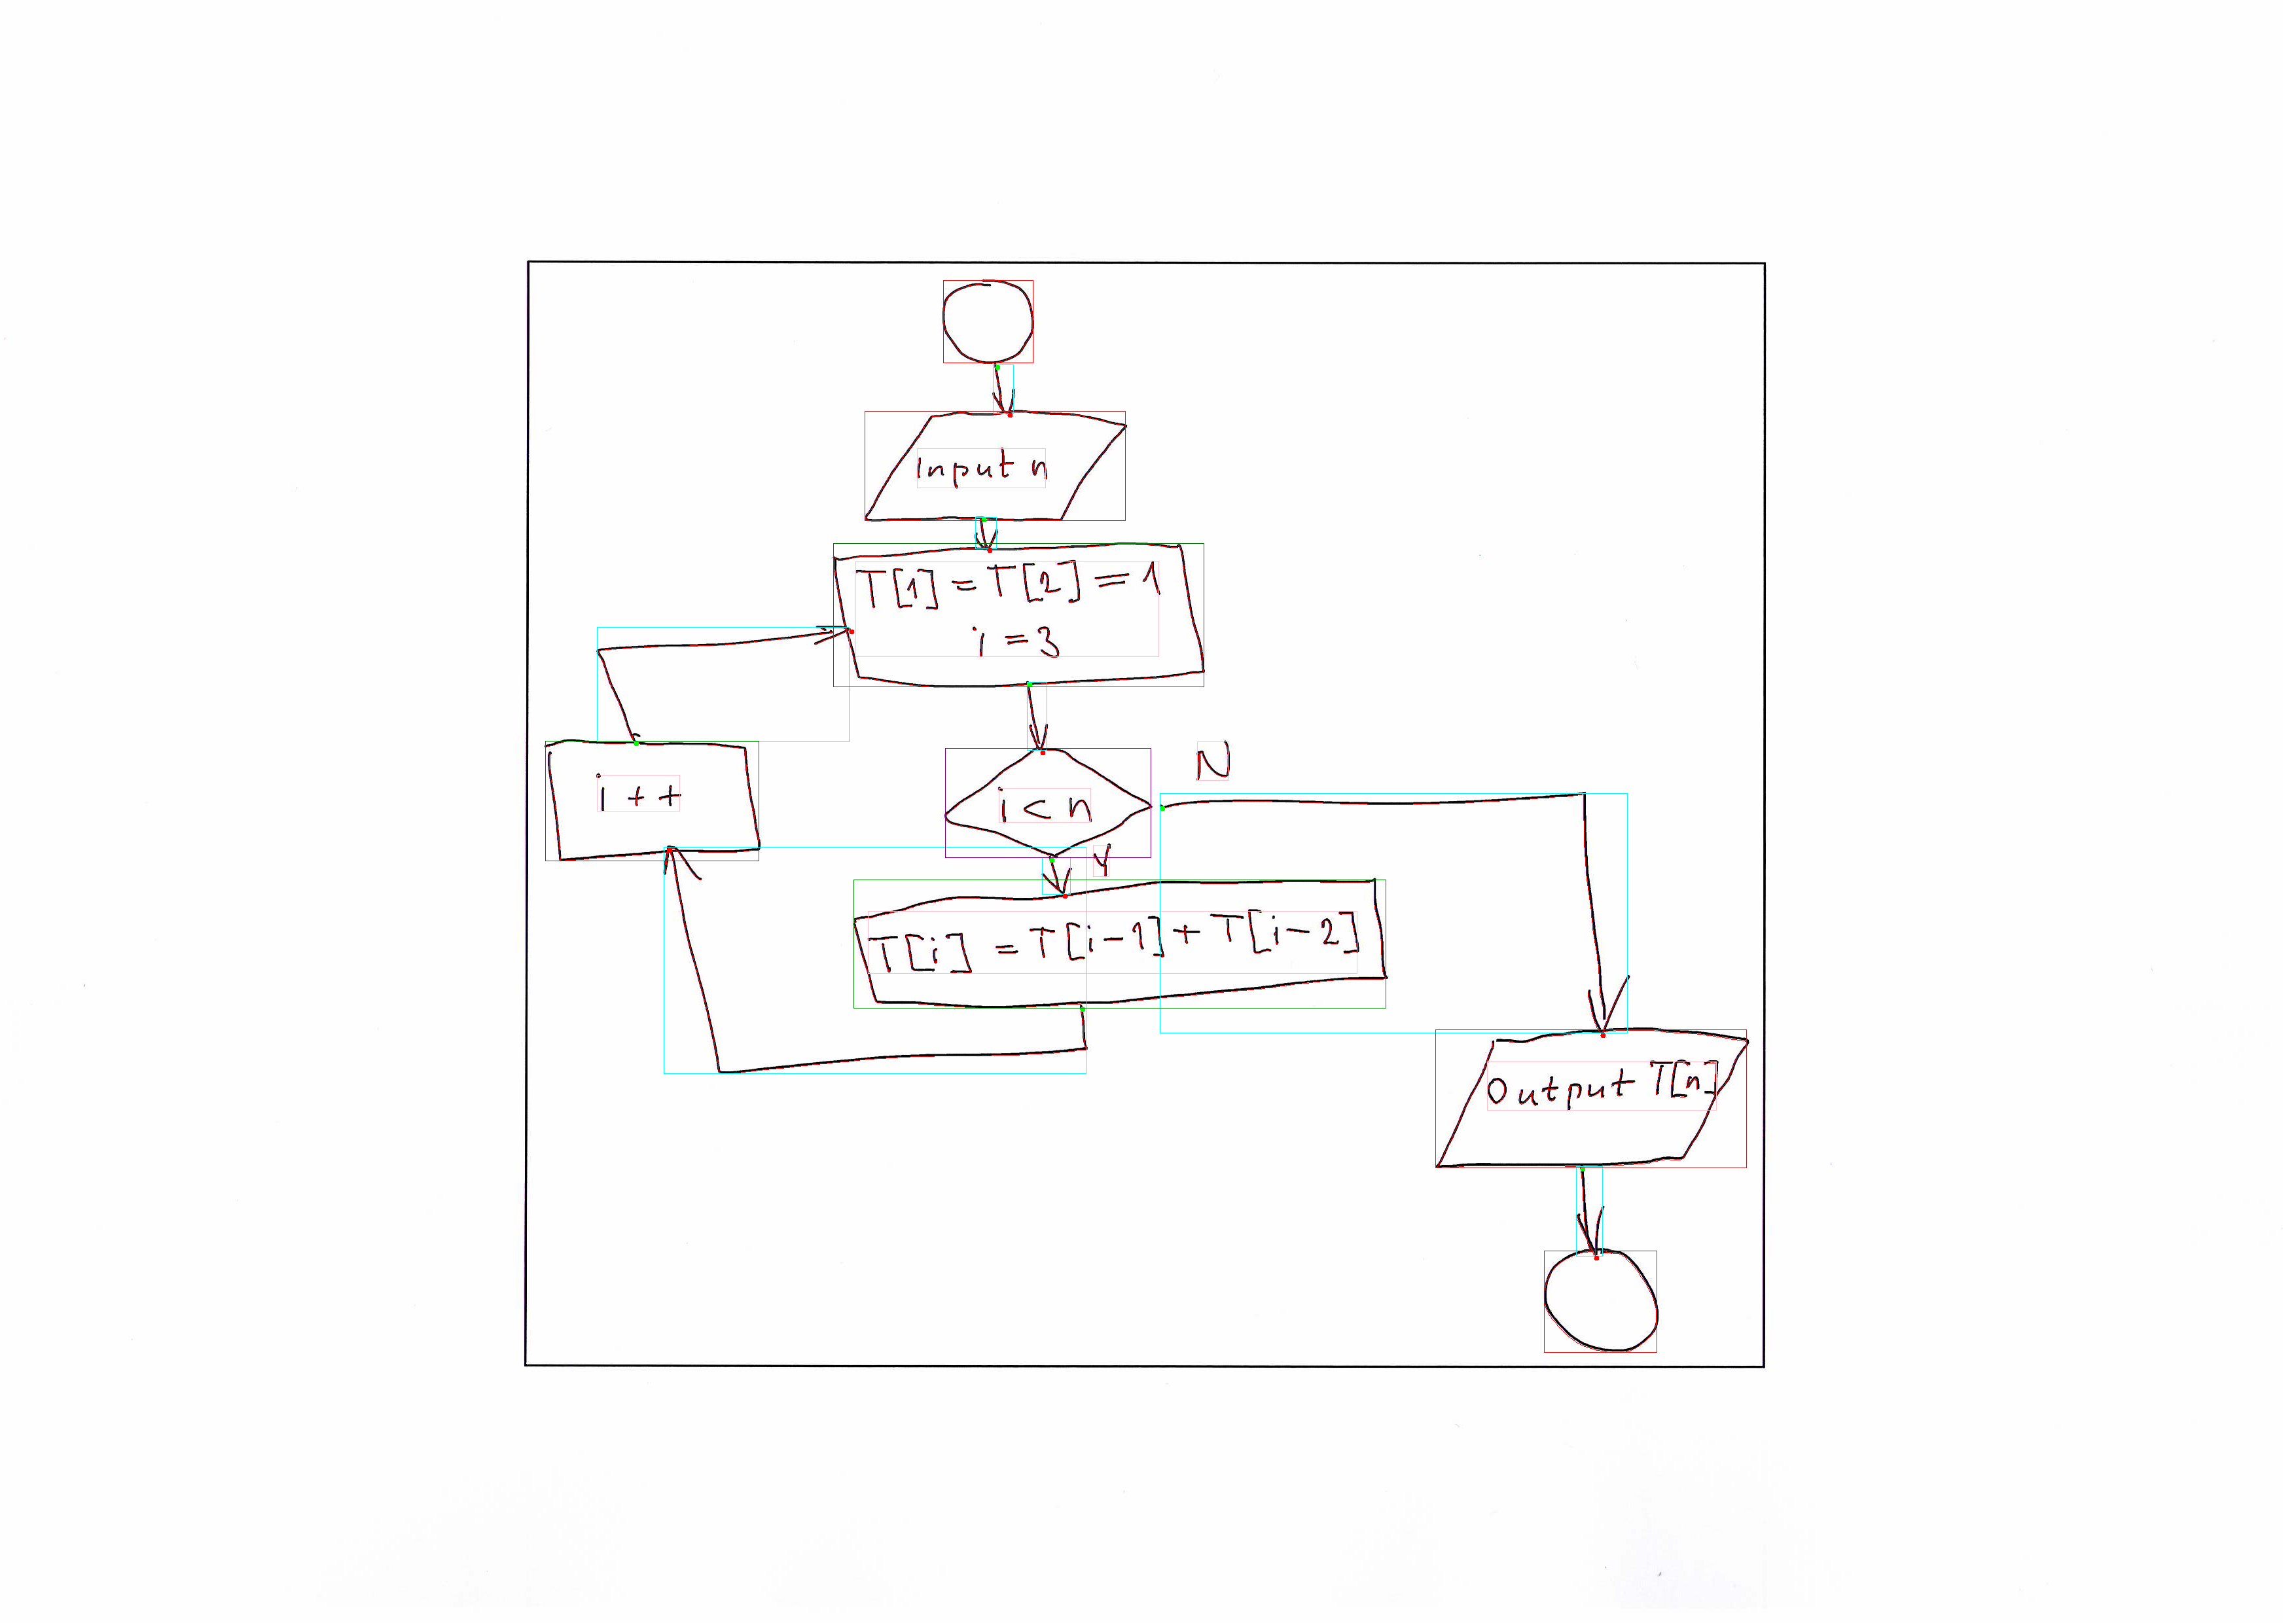 Input n
T[1] = T[2] = 1
i = 3
N
i + +
i < n
Y
T[i] = T[i-1] + T[i-2]
Output T[n]